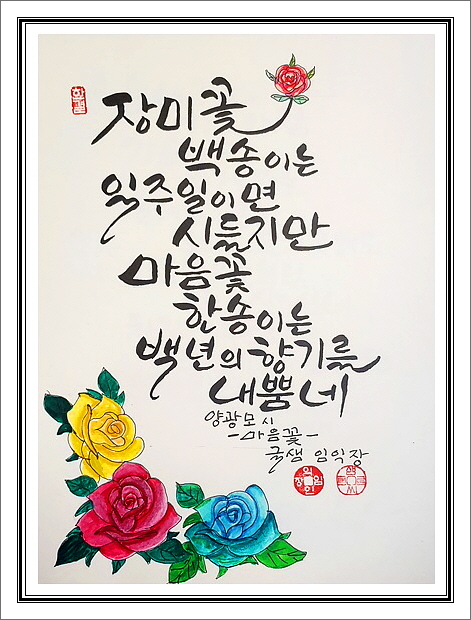 장미꽃
백송이는
일주일이면
시들지만
마음꽃
한송이는
백년의 향기를
내뿜네
양광모 시
-마음꽃-
글샘 임익장